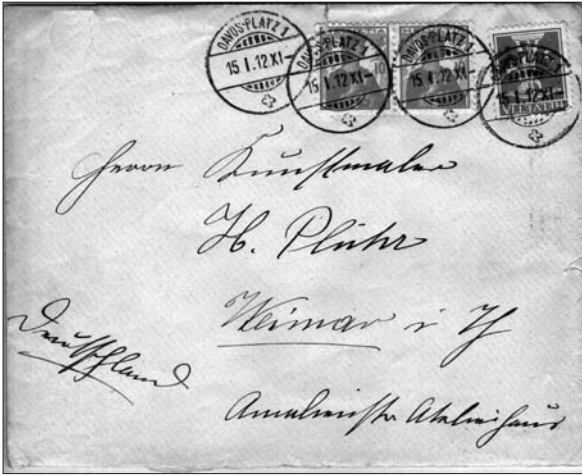 DAVOS-PLATZ 1
15 I.12 XI-
DAVOS-PLATZ 1
15 I.12 XI-10
DAVOS-PLATZ 1
15 I.12 XI-
DAVOS-PLATZ 1
15 I.12 XI-
Herrn Kunstmaler
H. Plühr
Weimar i Th
Deutschland
Amalienstr Atelierhaus